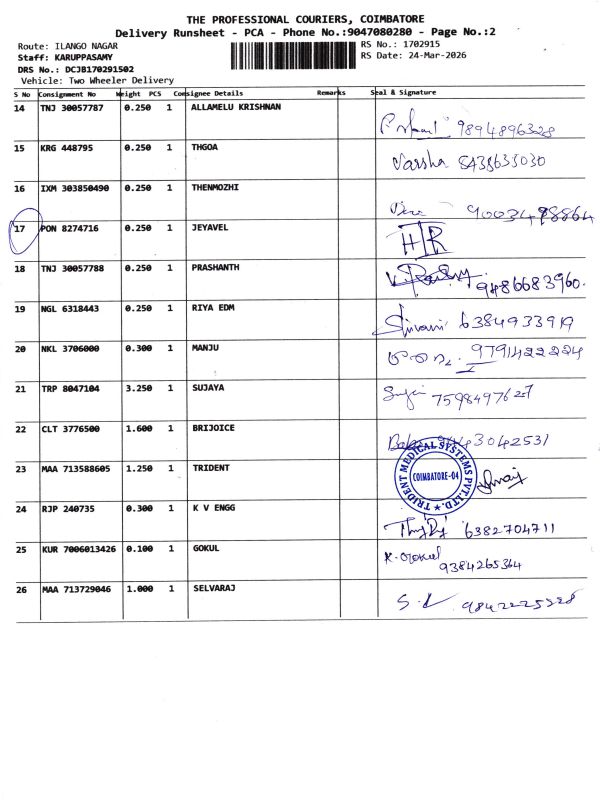 THE PROFESSIONAL COURIERS, COIMBATORE
Delivery Runsheet - PCA - Phone No.:9047080280 - Page No.:2
Route: ILANGO NAGAR
Staff: KARUPPASAMY
DRS No.: DCJB170291502
Vehicle: Two Wheeler Delivery
RS No.: 1702915
RS Date: 24-Mar-2026
S No Consignment No Weight PCS Consignee Details Remarks Seal & Signature
14 TNJ 30057787 0.250 1 ALLAMELU KRISHNAN 9894896328
15 KRG 448795 0.250 1 THGOA Varsha 8438633030
16 IXM 303850490 0.250 1 THENMOZHI
17 PON 8274716 0.250 1 JEYAVEL
18 TNJ 30057788 0.250 1 PRASHANTH 9486683960.
19 NGL 6318443 0.250 1 RIYA EDM 6384933919
20 NKL 3706000 0.300 1 MANJU 9791422224
21 TRP 8047104 3.250 1 SUJAYA 7598497627
22 CLT 3776500 1.600 1 BRIJOICE
23 MAA 713588605 1.250 1 TRIDENT TRIDENT MEDICAL SYSTEMS PVT.LTD. COIMBATORE-04
24 RJP 240735 0.300 1 K V ENGG 6382704711
25 KUR 7006013426 0.100 1 GOKUL K. Gokul
9384265364
26 MAA 713729046 1.000 1 SELVARAJ 9842225328